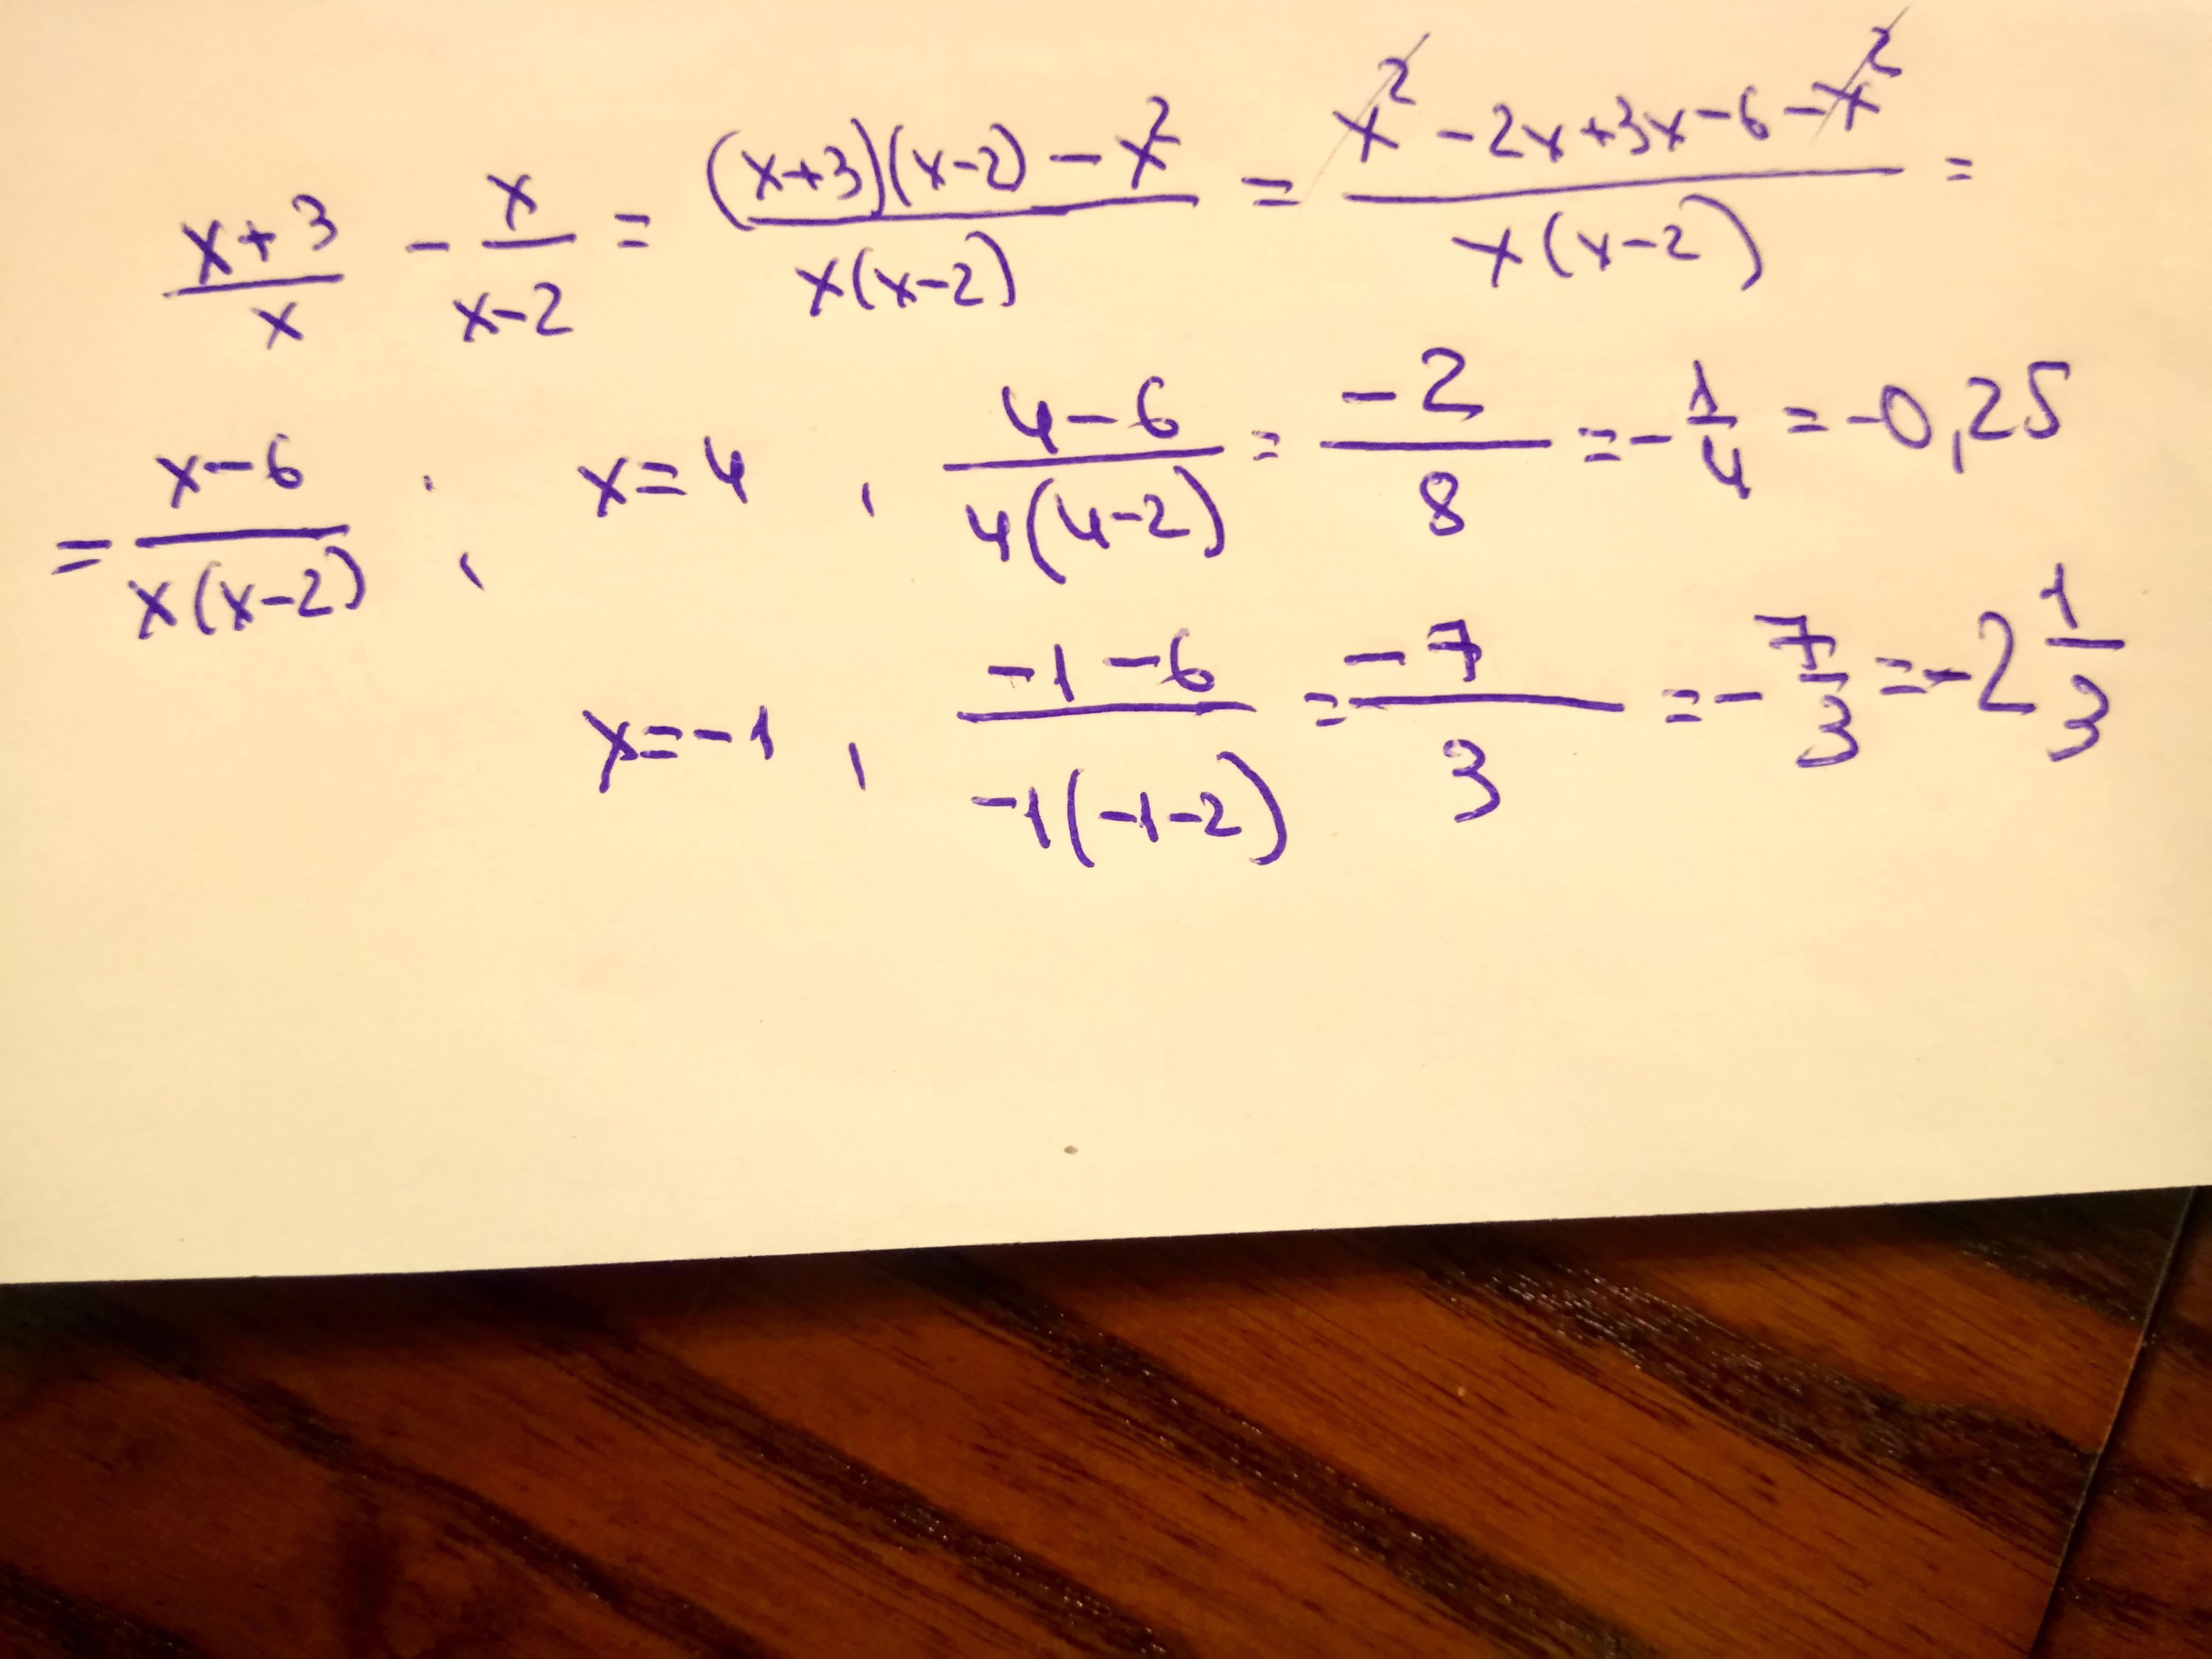 (x+3)/x - x/(x-2) = ((x+3)(x-2) - x²)/(x(x-2)) = (x² - 2x + 3x - 6 - x²)/(x(x-2)) =
= (x-6)/(x(x-2)) ; x = 4 , (4-6)/(4(4-2)) = (-2)/8 = -1/4 = -0,25
x = -1 , (-1-6)/(-1(-1-2)) = (-7)/3 = -7/3 = -2 1/3